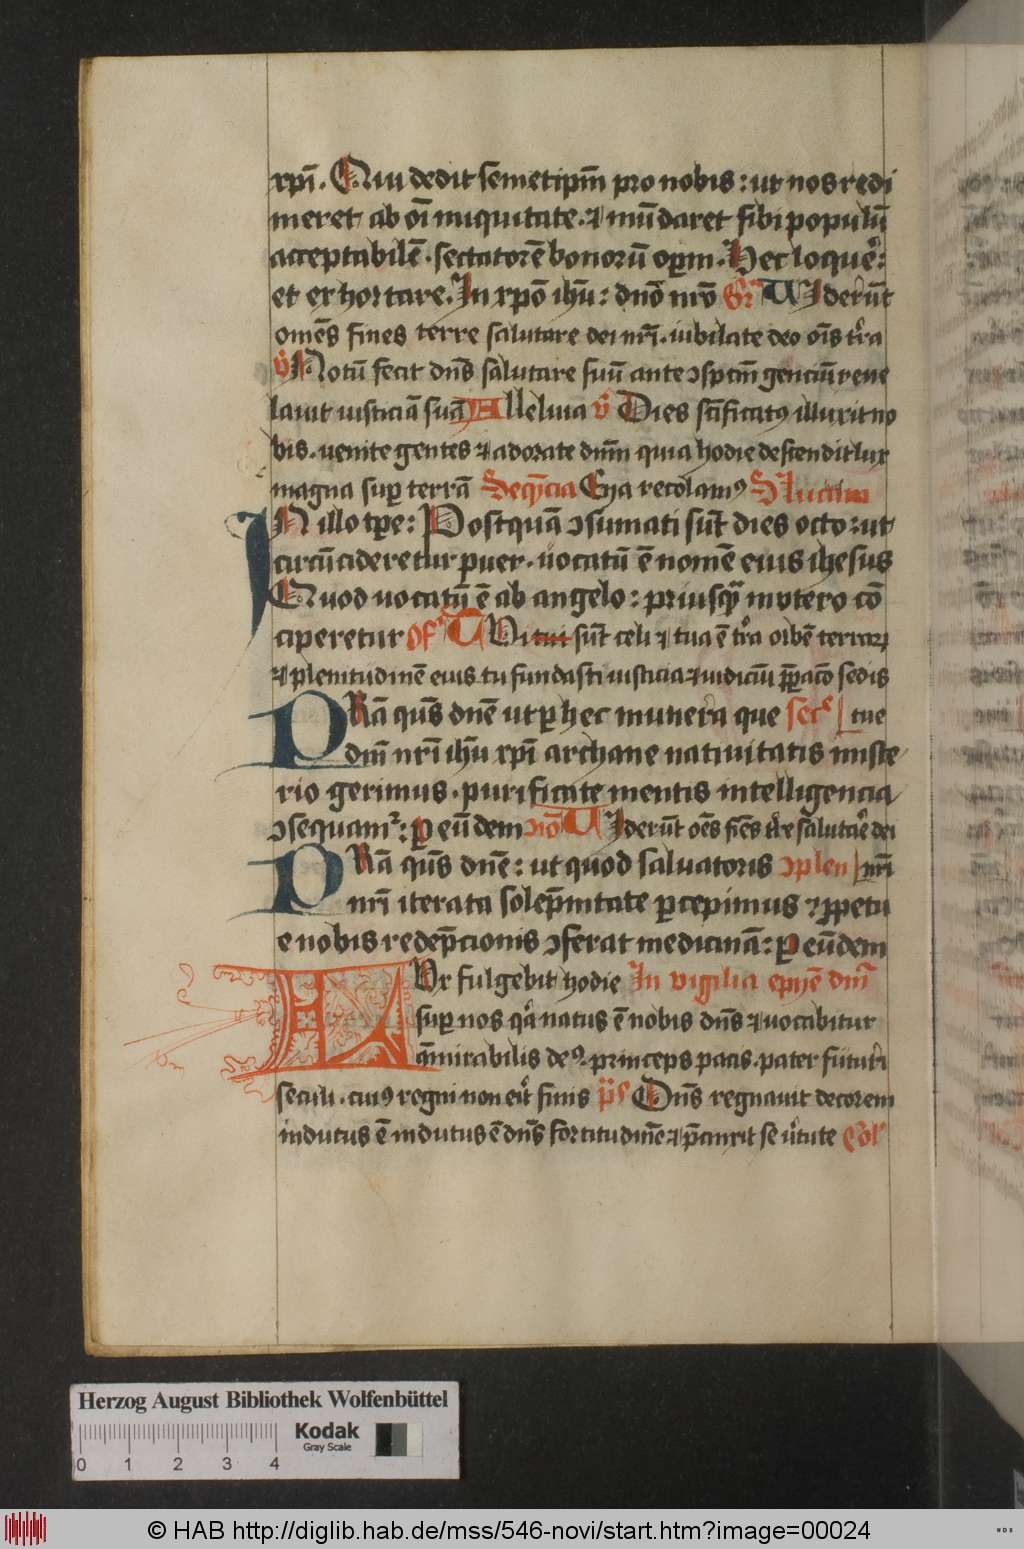 xpi̅. Qui dedit semetipm̅ pro nobis: ut nos redi
meret ab oi̅ iniquitate. ⁊ mu̅daret sibi populu̅
acceptabile̅. sectatore̅ bonoru̅ op̲m. Hec loque̅:
et exhortare. In xpo̅ ih̅u: dn̅o nr̅o Gr̅ UIderu̅t
om̅es fines terre salutare dei nr̅i. iubilate deo oi̅s tr̅a
v̅s Notu̅ fecit dn̅s salutare suu̅ ante ↄsp̅cm̅ genciu̅ reue
lauit iusticia̅ sua̅ Alleluia v̅ Dies sc̅ificatꝯ illuxit no
bis. uenite gentes ⁊ adorate dn̅m quia hodie descendit lux
magna sup̲ terra̅ Seque̅cia Eya recolamꝯ S Lucam
IN illo tp̲e: Postqua̅ ↄsumati su̅t dies octo: ut
circu̅cideretur puer. uocatu̅ e̅ nome̅ eius ihesus
Quod uocatu̅ e̅ ab angelo: priusq̅ in utero co̅
ciperetur Of̅ TUi sūt celi ⁊ tua e̅ tr̅a orbe̅ terraꝝ
⁊ plenitudine̅ eius tu fundasti iusticia ⁊ iudiciu̅ p̅paco̅ sedis
PRa̅ qs̅ dn̅e ut p̲ hec munera que secr̅ | tue
dn̅i nr̅i ih̅u xpi̅ archane natiuitatis miste
rio gerimus. purificate mentis intelligencia
ↄsequamr̅: P̲ eu̅dem ↄio̅ UIderu̅t oe̅s fi̅es tr̅e saluta̅e dei
PRa̅ qs̅ dn̅e: ut quod saluatoris ↄplen | nr̅i
nr̅i iterata sole̅pnitate p̲cepimus ꝑpetu
e nobis rede̅pcionis ↄferat medicina̅: P̲ eu̅dem
LUx fulgebit hodie In vigilia epye̅ dn̅i
sup̲ nos qa̅ natus e̅ nobis dn̅s ⁊ uocabitur
a̅mirabilis deꝯ. princeps pacis. pater futuri
seculi. cuiꝯ regni non eri̅t finis p̅s Dn̅s regnauit decorem
indutus e̅ indutus e̅ dn̅s fortitudine̅ ⁊ p̅cinxit se u̅tute Col̅
Herzog August Bibliothek Wolfenbüttel
Kodak
Gray Scale
0 1 2 3 4
© HAB http://diglib.hab.de/mss/546-novi/start.htm?image=00024